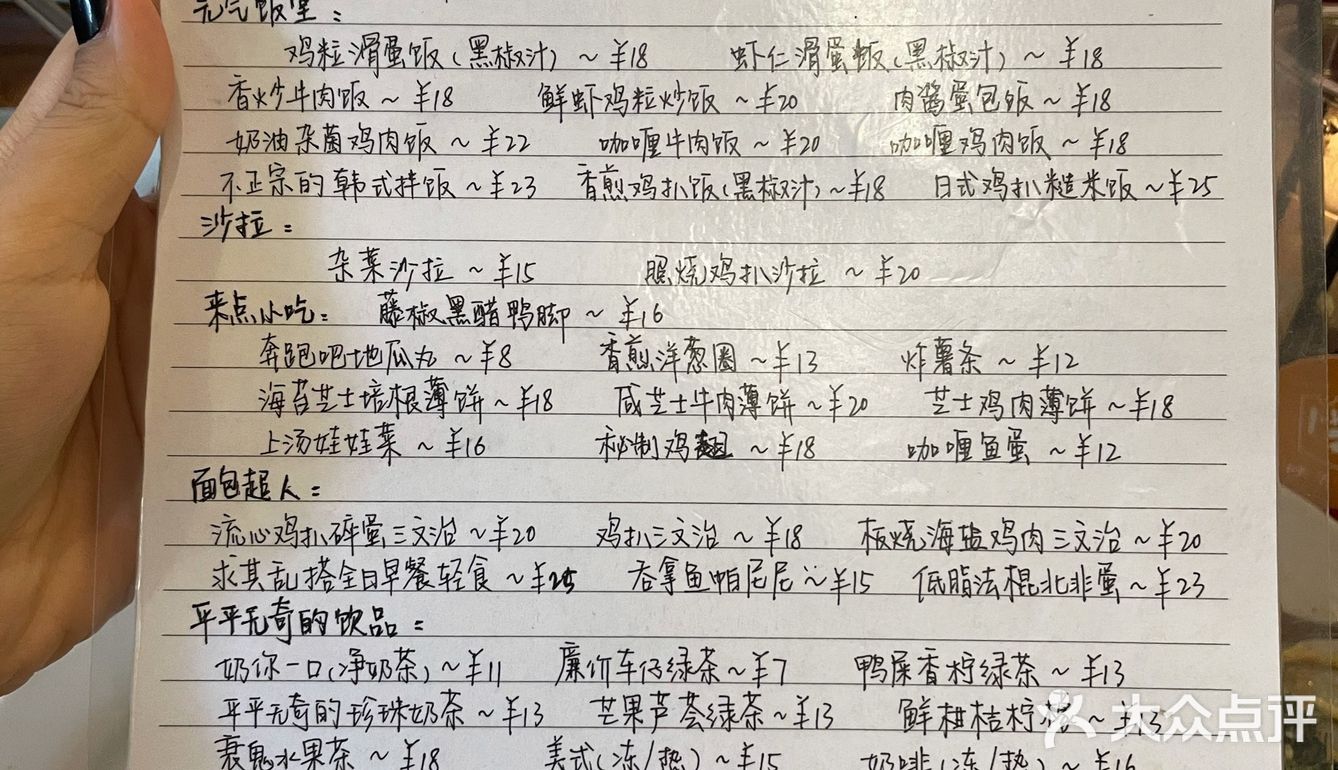 元气饭堂：
鸡粒滑蛋饭（黑椒汁）~¥18 虾仁滑蛋饭（黑椒汁）~¥18
香炒牛肉饭~¥18 鲜虾鸡粒炒饭~¥20 肉酱蛋包饭~¥18
奶油杂菌鸡肉饭~¥22 咖喱牛肉饭~¥20 咖喱鸡肉饭~¥18
不正宗的韩式拌饭~¥23 香煎鸡扒饭（黑椒汁）~¥18 日式鸡扒糙米饭~¥25
沙拉：
杂菜沙拉~¥15 照烧鸡扒沙拉~¥20
来点小吃： 藤椒黑醋鸭脚~¥16
奔跑吧地瓜丸~¥8 香煎洋葱圈~¥13 炸薯条~¥12
海苔芝士培根薄饼~¥18 咸芝士牛肉薄饼~¥20 芝士鸡肉薄饼~¥18
上汤娃娃菜~¥16 秘制鸡翅~¥18 咖喱鱼蛋~¥12
面包超人：
流心鸡扒碎蛋三文治~¥20 鸡扒三文治~¥18 板烧海盐鸡肉三文治~¥20
求其乱搭全日早餐轻食~¥25 吞拿鱼帕尼尼~¥15 低脂法棍北非蛋~¥23
平平无奇的饮品：
奶你一口（净奶茶）~¥11 廉价车仔绿茶~¥7 鸭屎香柠绿茶~¥13
平平无奇的珍珠奶茶~¥13 芒果芦荟绿茶~¥13 鲜柑桔柠 ~¥13
衰鬼水果茶~¥18 美式（冻/热）~¥15 奶啡（冻/热）~¥16
大众点评